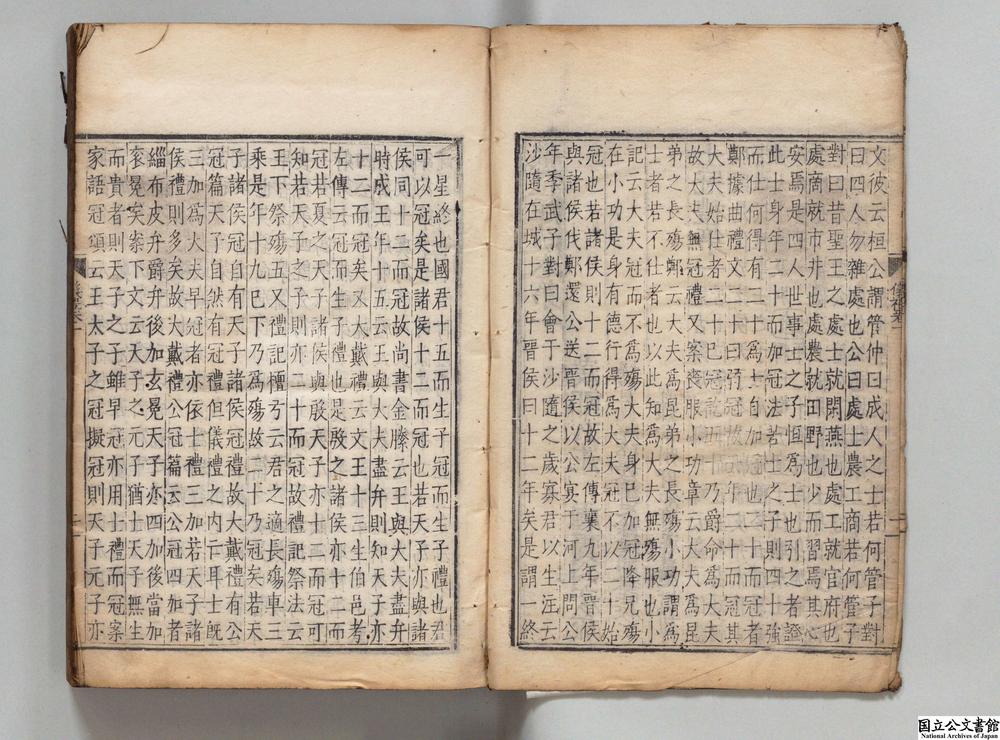 文彼云桓公謂管仲曰成人之士若何管子對
曰四人勿雜處也公曰處士農工商若何管子
對曰昔聖王之處士就閑燕也處工就官府也
處商就市井也處農就田野也少而習焉其心
安焉是四人世事士之子恒爲士也引之者證
此士身年二十而加冠法若士之子則四十強
而仕何得有二十爲士自加冠也二十而冠者
鄭據曲禮文二十曰弱冠故云年二十而冠其
大夫始仕者二十已冠訖五十乃爵命爲大夫
故大夫無冠禮又案喪服小功章云大夫爲昆
弟之長殤鄭云大夫爲昆弟之長殤小功謂爲
士者若不仕者也以此知爲大夫無殤服也小
記云大夫冠而不爲殤大夫身已加冠降兄殤
在小功是身有德行得爲大夫冠不以二十始
冠也若諸侯則十二而冠故左傳襄九年晉侯
與諸侯伐鄭還公送晉侯以公宴于河上問公
年季武子對曰會于沙隨之歲寡君以生注云
沙隨在成十六年晉侯曰十二年矣是謂一終
一星終也國君十五而生子冠而生子禮也君
可以冠矣是諸侯十二而冠也若天子亦與諸
侯同十二而冠故尚書金縢云王與大夫盡弁
時成王年十五云王與大夫盡弁則知天子亦
十二而冠矣又大戴禮云文王十三生伯邑考
左傳云冠而生子禮也是殷之諸侯亦十二而
冠若夏之天子諸侯與殷天子亦十二而冠可
知若天子之子則亦二十而冠故禮記祭法云
王下祭殤五又禮記檀弓云君之適長殤車三
乘是年十九已下乃爲殤故二十乃冠矣若天
子諸侯冠自有天子諸侯冠禮故大戴禮有公
冠篇天子自然有冠禮但儀禮之內亡耳士既
三加爲大夫早冠者亦依士禮三加若天子諸
侯禮則多矣故大戴禮公冠篇云公冠四加者
緇布皮弁爵弁後加玄冕天子亦四加後當加
衮冕矣案下文云天子之元子猶士天下無生
而貴者則天子之子雖早冠亦用士禮而冠案
家語冠頌云王太子之冠擬冠則天子元子亦
国立公文書館
National Archives of Japan